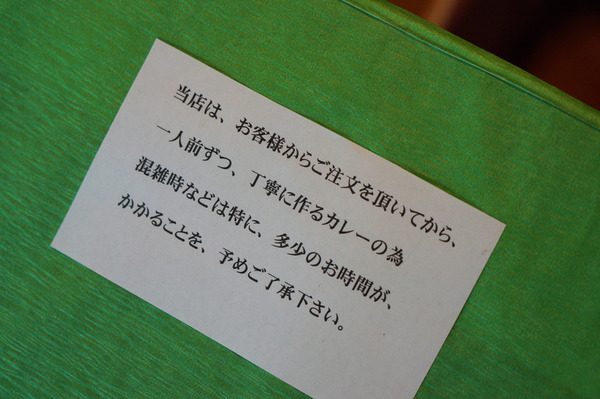 当店は、お客様からご注文を頂いてから、
一人前ずつ、丁寧に作るカレーの為
混雑時などは特に、多少のお時間が、
かかることを、予めご了承下さい。